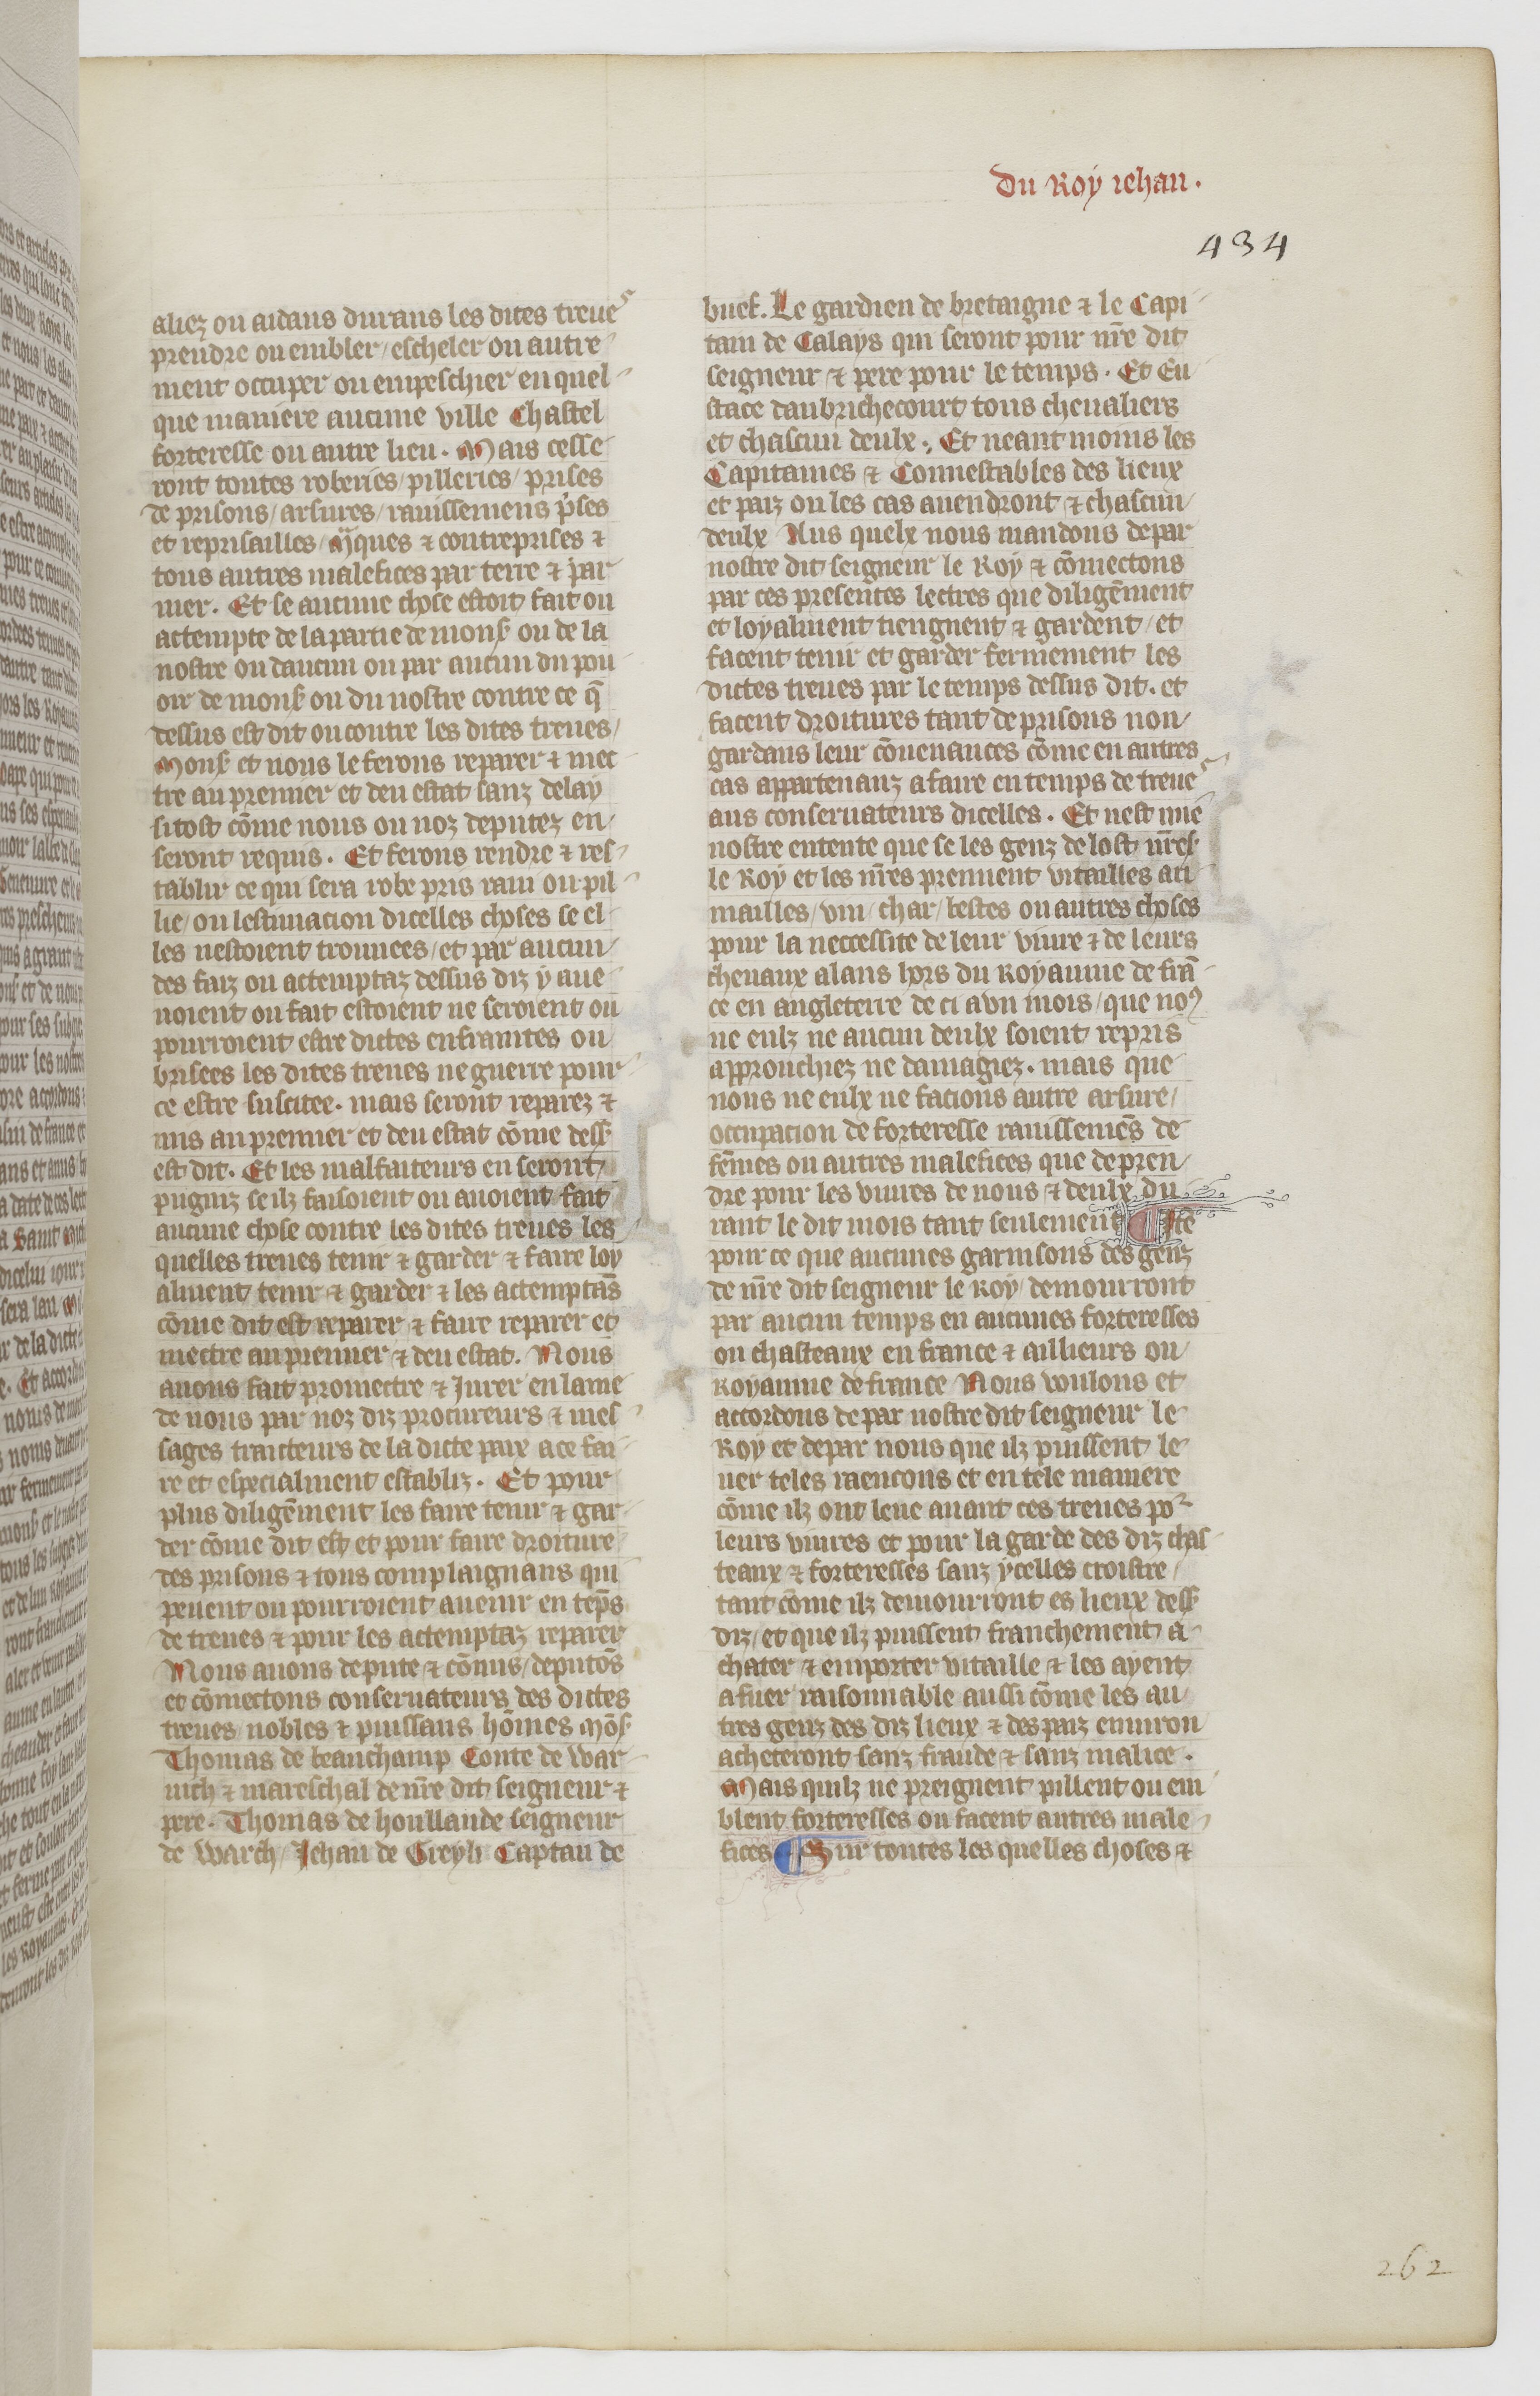 du Roy iehan.
434
aliez ou aidans durans les dites treues
prendre ou embler / escheler ou autre
ment occuper ou empeschier en quel
que maniere aucune ville Chastel
forteresse ou autre lieu. Mais cesse
ront toutes roberies / pilleries / prises
de prisons / arsures / rauissemens p̃ses
et reprisailles / et contreprises ⁊
tous autres malefices par terre ⁊ par
mer. Et se aucune chose estoit fait ou
actempte de la partie de monſ ou de la
nostre ou daucun ou par aucun du pou
oir de monſ ou du nostre contre ce q̃
dessus est dit ou contre les dites treues /
Monſ et nous le ferons reparer ⁊ met
tre au premier et deu estat sanz delay
si tost cõme nous ou noz deputez en
seront requis. Et ferons rendre ⁊ res
tablir ce qui sera robe pris raui ou pil
lie / ou lestimacion dicelles choses se el
les nestoient trouuees / et par aucun
des faiz ou actemptaz dessus diz y aue
noient ou fait estoient ne seroient ou
pourroient estre dictes enfraintes ou
brisees les dites treues ne guerre pour
ce estre suscitee. mais seront reparez ⁊
mis au premier et deu estat cõme dess
est dit. Et les malfaiteurs en seront
pugniz se ilz faisoient ou auoient fait
aucune chose contre les dites treues les
quelles treues tenir ⁊ garder ⁊ faire loy
alment tenir ⁊ garder ⁊ les actemptãs
cõme dit est reparer ⁊ faire reparer et
mectre au premier ⁊ deu estat. Nous
auons fait promectre ⁊ Jurer en lame
de nous par noz diz procureurs ⁊ mes
sages traicteurs de la dicte paix a ce fai
re et especialment establiz. Et pour
plus diligẽment les faire tenir ⁊ gar
der cõme dit est et pour faire droiture
des prisons ⁊ tous complaignans qui
peuent ou pourroient auenir en tẽps
de treues ⁊ pour les actemptaz reparer
Nous auons depute ⁊ cõmis / deputõs
et cõmectons conseruateurs des dictes
treues nobles ⁊ puissans hõmes Mõſ
Thomas de beauchamp Conte de War
uich ⁊ mareschal de nr̃e dit seigneur ⁊
pere. Thomas de houllande seigneur
de Warch / Jehan de Greyli Captau de
buef. Le gardien de bretaigne ⁊ le Capi
tain de Calays qui seront pour nr̃e dit
seigneur ⁊ pere pour le temps. Et Eu
stace daubrichecourt tous cheualiers
et chascun deulx. Et neant moins les
Capitaines ⁊ Connestables des lieux
et paiz ou les cas auendront ⁊ chascun
deulx Aus quelx nous mandons de par
nostre dit seigneur le Roy ⁊ cõmectons
par ces presentes lectres que diligẽment
et loyalment tiengnent ⁊ gardent / et
facent tenir et garder fermement les
dictes treues par le temps dessus dit. et
facent droitures tant de prisons non
gardans leur cõuenances cõme en autres
cas appartenanz a faire en temps de treues
aus conseruateurs dicelles. Et nest mie
nostre entente que se les genz de lost nr̃eſ
le Roy et les nr̃es prennent vitailles au
mailles / vin / char / bestes ou autres choses
pour la neccessite de leur viure ⁊ de leurs
cheuaux alans hors du Royaume de frã
ce en angleterre de ci a vn mois / que noꝰ
ne eulz ne aucun deulx soient repris
approuchiez ne damagiez. mais que
nous ne eulx ne facions autre arsure /
occupacion de forteresse rauissemẽs de
fẽmes ou autres malefices que de pren
dre pour les viures de nous ⁊ deulx du
rant le dit mois tant seulement ¶ Itẽ
pour ce que aucunes garnisons des genz
de nr̃e dit seigneur le Roy demourront
par aucun temps en aucunes forteresses
ou chasteaux en france ⁊ ailleurs ou
Royaume de france Nous voulons et
accordons de par nostre dit seigneur le
Roy et de par nous que ilz puissent le
uer teles raencons et en tele maniere
cõme ilz ont leue auant ces treues poᷣ
leurs viures et pour la garde des diz chas
teaux ⁊ forteresses sanz ycelles croistre /
tant cõme ilz demourront es lieux dess
diz / et que ilz puissent franchement a
chater ⁊ emporter vitaille ⁊ les ayent
a fuer raisonnable aussi cõme les au
tres genz des diz lieux ⁊ des paiz enuiron
acheteront sanz fraude ⁊ sanz malice.
Mais quilz ne preignent pillent ou em
blent forteresses ou facent autres male
fices ¶ Sur toutes les quelles choses ⁊
262